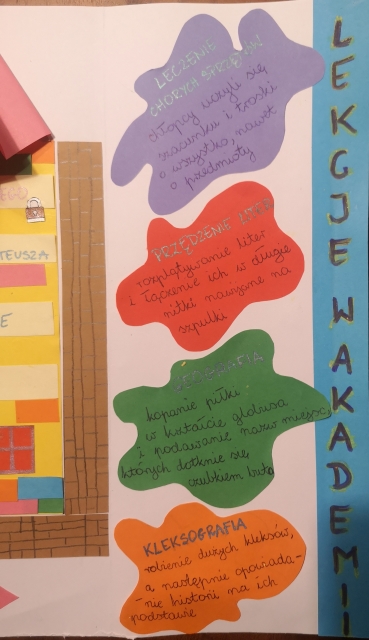 LECZENIE
CHORYCH SPRZĘTÓW
chłopcy uczyli się
szacunku i troski
o wszystko, nawet
o przedmioty
PRZĘDZENIE LITER
rozplątywanie liter
i łączenie ich w długie
nitki nawijane na
szpulki
GEOGRAFIA
kopanie piłki
w kształcie globusa
i podawanie nazw miejsc,
których dotknie się
czubkiem buta
KLEKSOGRAFIA
robienie dużych kleksów,
a następnie opowiada-
nie historii na ich
podstawie
LEKCJE W AKADEMII
TEUSZA
E